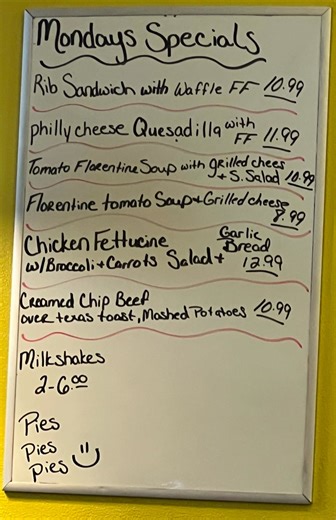 Mondays Specials
Rib Sandwich with Waffle FF 10.99
philly cheese Quesadilla with FF 11.99
Tomato Florentine Soup with grilled chees
+ S. Salad 10.99
Florentine tomato Soup + Grilled cheese
8.99
Chicken Fettucine Garlic Bread
w/ Broccoli + Carrots Salad + 12.99
Creamed Chip Beef
over texas toast, Mashed Potatoes 10.99
Milkshakes
2-6.00
Pies
Pies
Pies